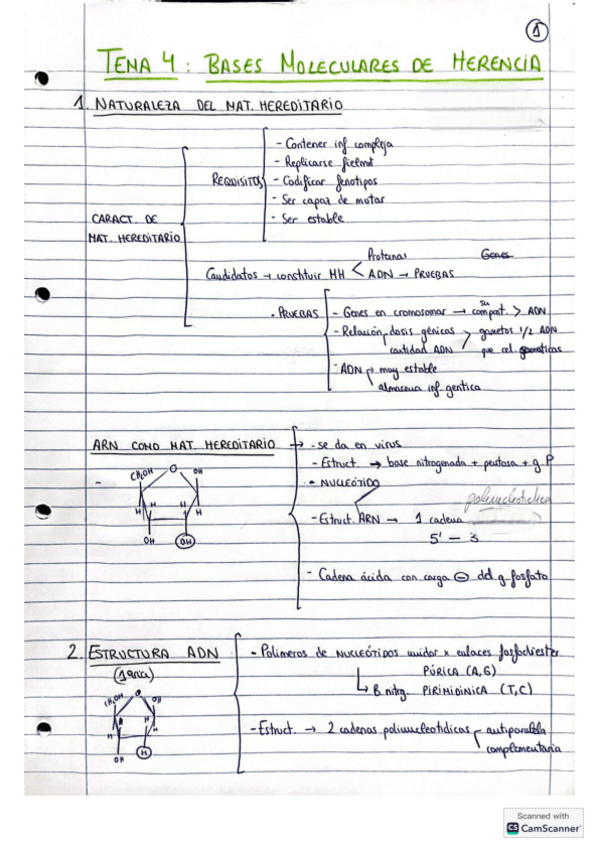 1
TEMA 4: BASES MOLECULARES DE HERENCIA
1. NATURALEZA DEL MAT. HEREDITARIO
CARACT. DE
MAT. HEREDITARIO
REQUISITOS
- Contener inf compleja
- Replicarse fielmnt
- Codificar fenotipos
- Ser capaz de mutar
- Ser estable
Candidatos → constituir MH < Proteinas Genes
ADN → PRUEBAS
• PRUEBAS
- Genes en cromosomas → su compat. > ADN
- Relación dosis génicas gametos 1/2 ADN
cantidad ADN que cel. somaticas
- ADN muy estable
almacena inf. gentica
ARN COMO MAT. HEREDITARIO → - se da en virus
- Estruct. → base nitrogenada + pentosa + g. P
• NUCLEÓTIDO
polinucleotidica
- Estruct. ARN → 1 cadena
5' - 3
- Cadena ácida con carga ⊖ del g. fosfato
-
CH2OH O OH
H H H H
OH OH
2. ESTRUCTURA ADN
(1aria)
• Polimeros de NUCLEÓTIDOS unidos x enlaces fosfodiester
PÚRICA (A,G)
B. nitrg. PIRIMIDINICA (T,C)
- Estruct. → 2 cadenas polinucleotidicas antiparalela
complementaria
CH2OH O OH
H H H H
OH H
Scanned with
CS CamScanner